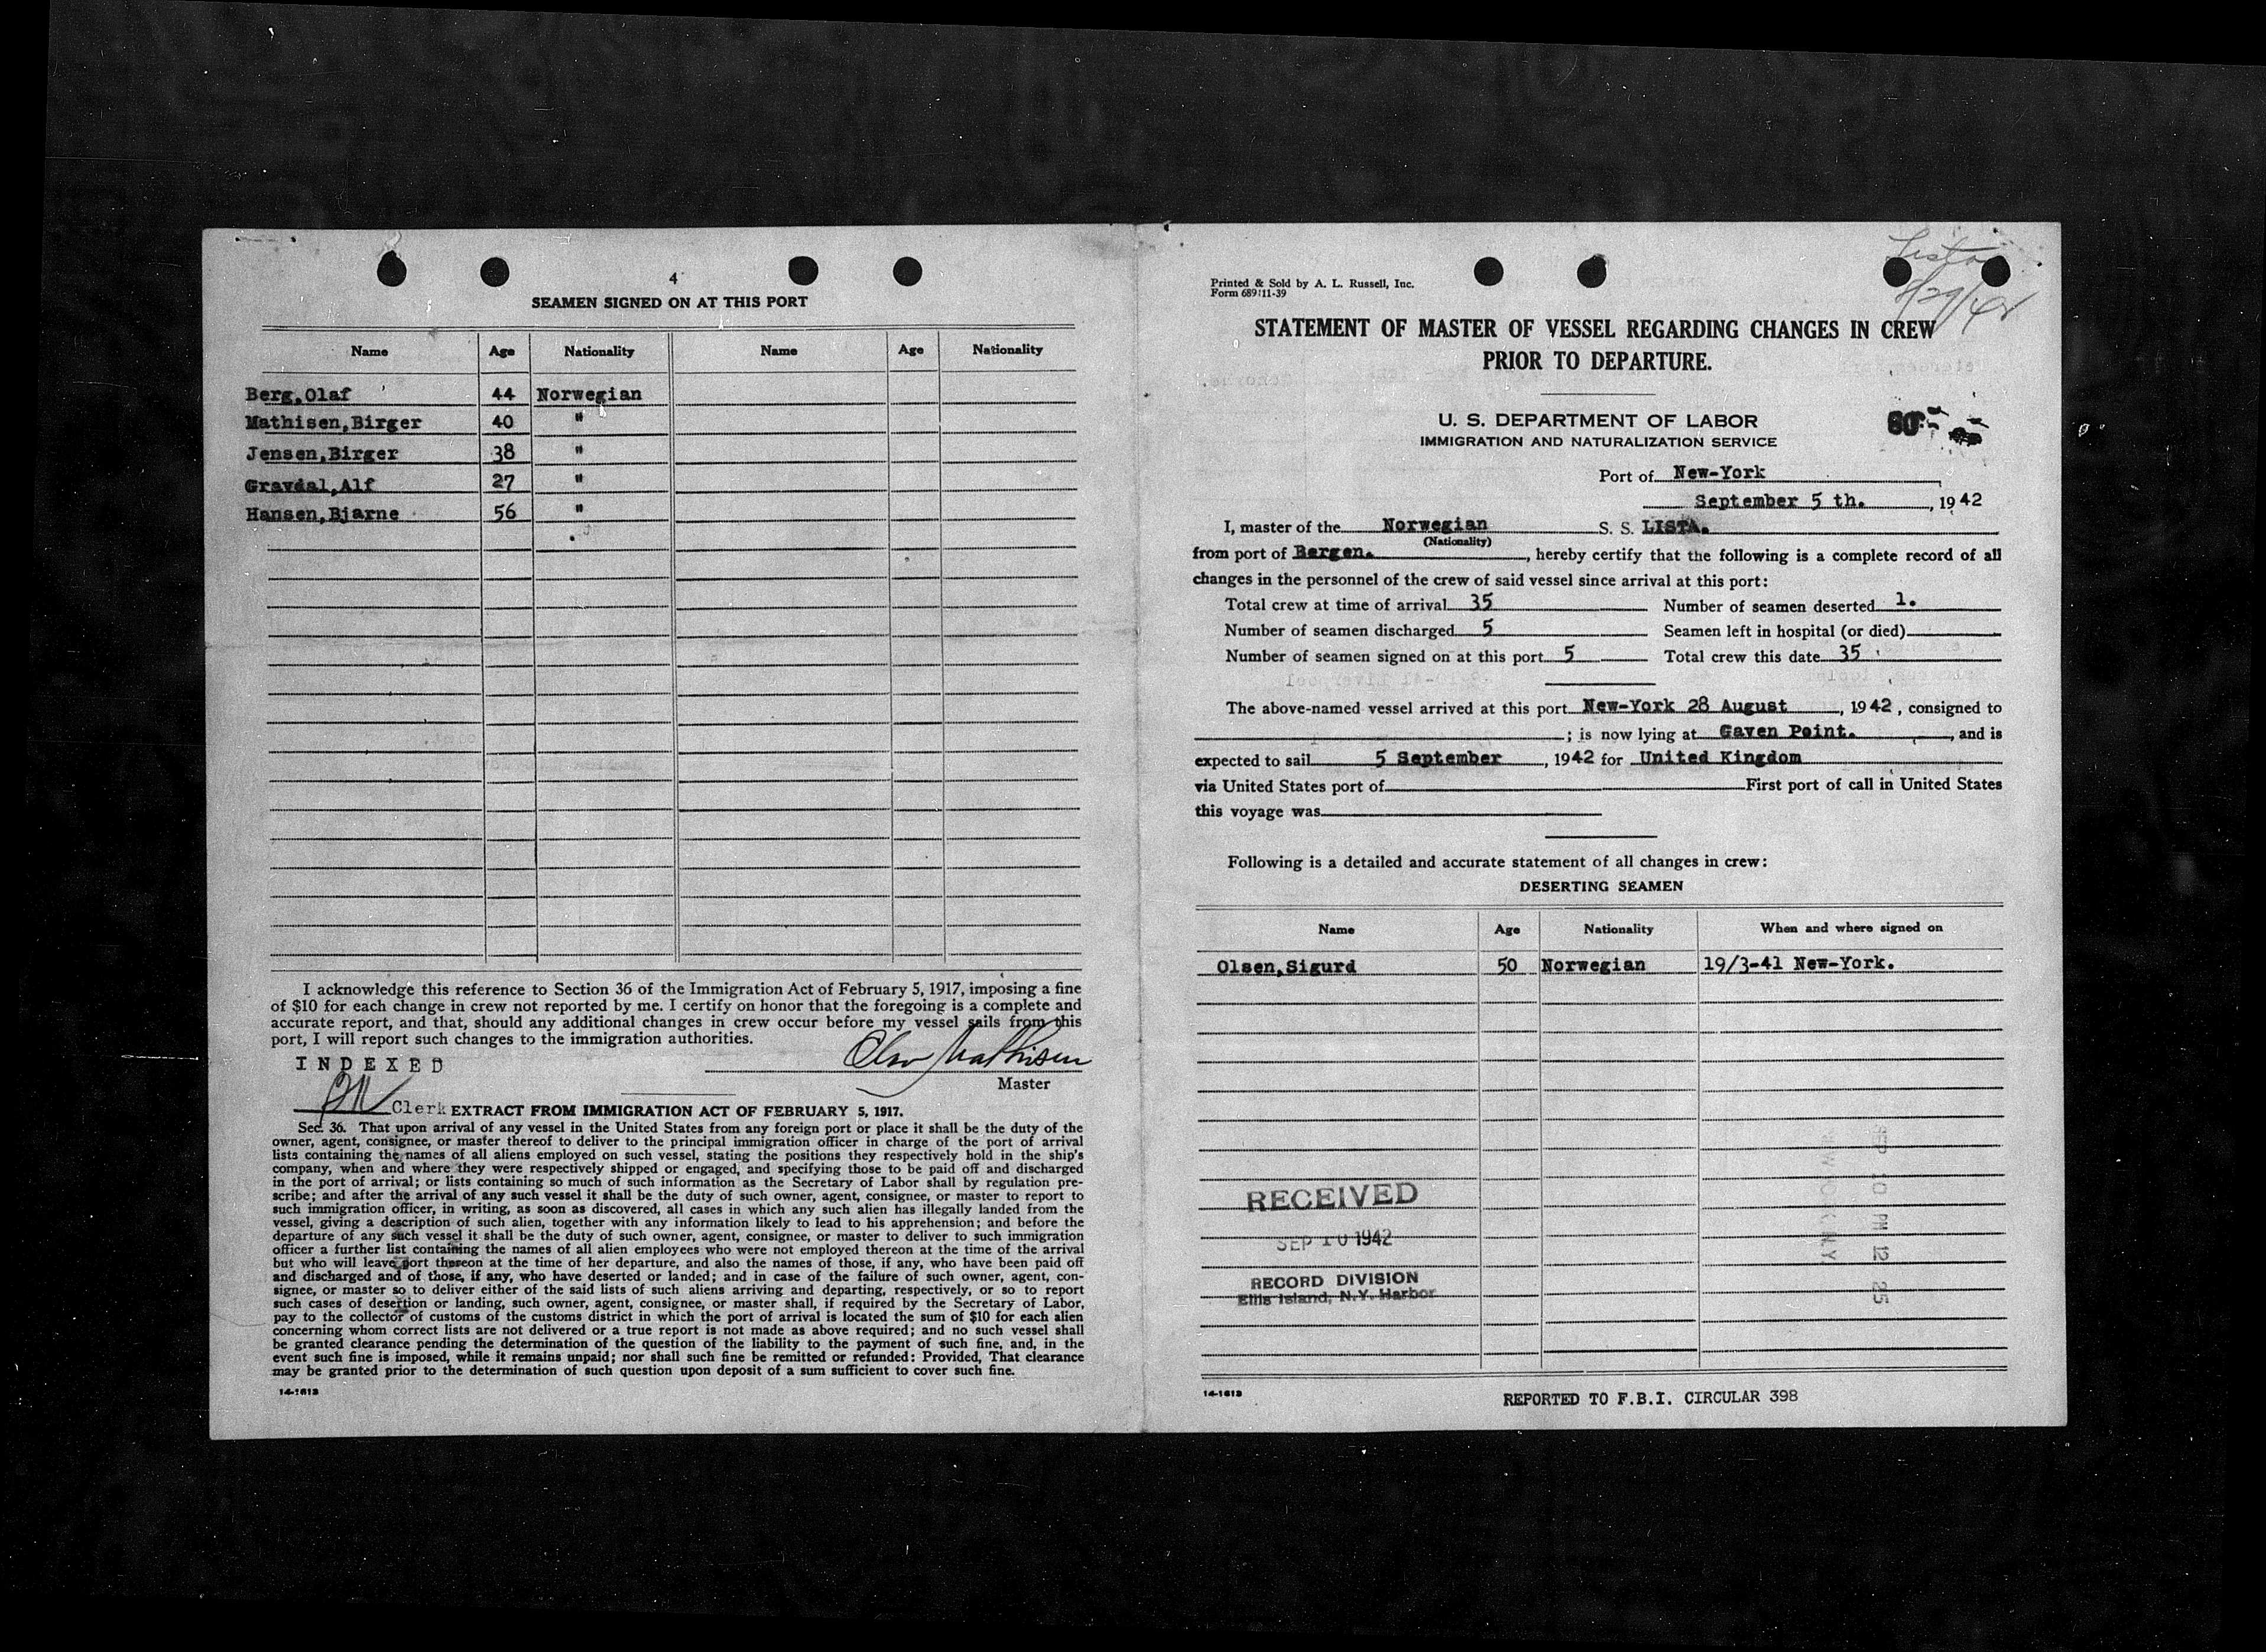 4
SEAMEN SIGNED ON AT THIS PORT
Name Age Nationality Name Age Nationality
Berg,Olaf 44 Norwegian
Mathisen,Birger 40 "
Jensen,Birger 38 "
Gravdal,Alf 27 "
Hansen,Bjarne 56 "
I acknowledge this reference to Section 36 of the Immigration Act of February 5, 1917, imposing a fine
of $10 for each change in crew not reported by me. I certify on honor that the foregoing is a complete and
accurate report, and that, should any additional changes in crew occur before my vessel sails from this
port, I will report such changes to the immigration authorities.
INDEXED
Olav Mathisen
Master
Clerk
EXTRACT FROM IMMIGRATION ACT OF FEBRUARY 5, 1917.
Sec. 36. That upon arrival of any vessel in the United States from any foreign port or place it shall be the duty of the
owner, agent, consignee, or master thereof to deliver to the principal immigration officer in charge of the port of arrival
lists containing the names of all aliens employed on such vessel, stating the positions they respectively hold in the ship's
company, when and where they were respectively shipped or engaged, and specifying those to be paid off and discharged
in the port of arrival; or lists containing so much of such information as the Secretary of Labor shall by regulation pre-
scribe; and after the arrival of any such vessel it shall be the duty of such owner, agent, consignee, or master to report to
such immigration officer, in writing, as soon as discovered, all cases in which any such alien has illegally landed from the
vessel, giving a description of such alien, together with any information likely to lead to his apprehension; and before the
departure of any such vessel it shall be the duty of such owner, agent, consignee, or master to deliver to such immigration
officer a further list containing the names of all alien employees who were not employed thereon at the time of the arrival
but who will leave port thereon at the time of her departure, and also the names of those, if any, who have been paid off
and discharged and of those, if any, who have deserted or landed; and in case of the failure of such owner, agent, con-
signee, or master so to deliver either of the said lists of such aliens arriving and departing, respectively, or so to report
such cases of desertion or landing, such owner, agent, consignee, or master shall, if required by the Secretary of Labor,
pay to the collector of customs of the customs district in which the port of arrival is located the sum of $10 for each alien
concerning whom correct lists are not delivered or a true report is not made as above required; and no such vessel shall
be granted clearance pending the determination of the question of the liability to the payment of such fine, and, in the
event such fine is imposed, while it remains unpaid; nor shall such fine be remitted or refunded: Provided, That clearance
may be granted prior to the determination of such question upon deposit of a sum sufficient to cover such fine.
14-1613
Lista
8/29/42
Printed & Sold by A. L. Russell, Inc.
Form 689:11-39
STATEMENT OF MASTER OF VESSEL REGARDING CHANGES IN CREW
PRIOR TO DEPARTURE.
U. S. DEPARTMENT OF LABOR
IMMIGRATION AND NATURALIZATION SERVICE
Port of New-York
September 5 th., 1942
I, master of the Norwegian S. S. LISTA.
(Nationality)
from port of Bergen., hereby certify that the following is a complete record of all
changes in the personnel of the crew of said vessel since arrival at this port:
Total crew at time of arrival 35 Number of seamen deserted 1.
Number of seamen discharged 5 Seamen left in hospital (or died)
Number of seamen signed on at this port 5 Total crew this date 35
The above-named vessel arrived at this port New-York 28 August, 1942, consigned to
; is now lying at Gaven Point., and is
expected to sail 5 September, 1942 for United Kingdom
via United States port of First port of call in United States
this voyage was
Following is a detailed and accurate statement of all changes in crew:
DESERTING SEAMEN
Name Age Nationality When and where signed on
Olsen,Sigurd 50 Norwegian 19/3-41 New-York.
RECEIVED
SEP 10 1942
RECORD DIVISION
Ellis Island, N.Y. Harbor
SEP 10 PM 12 25
14-1613
REPORTED TO F.B.I. CIRCULAR 398